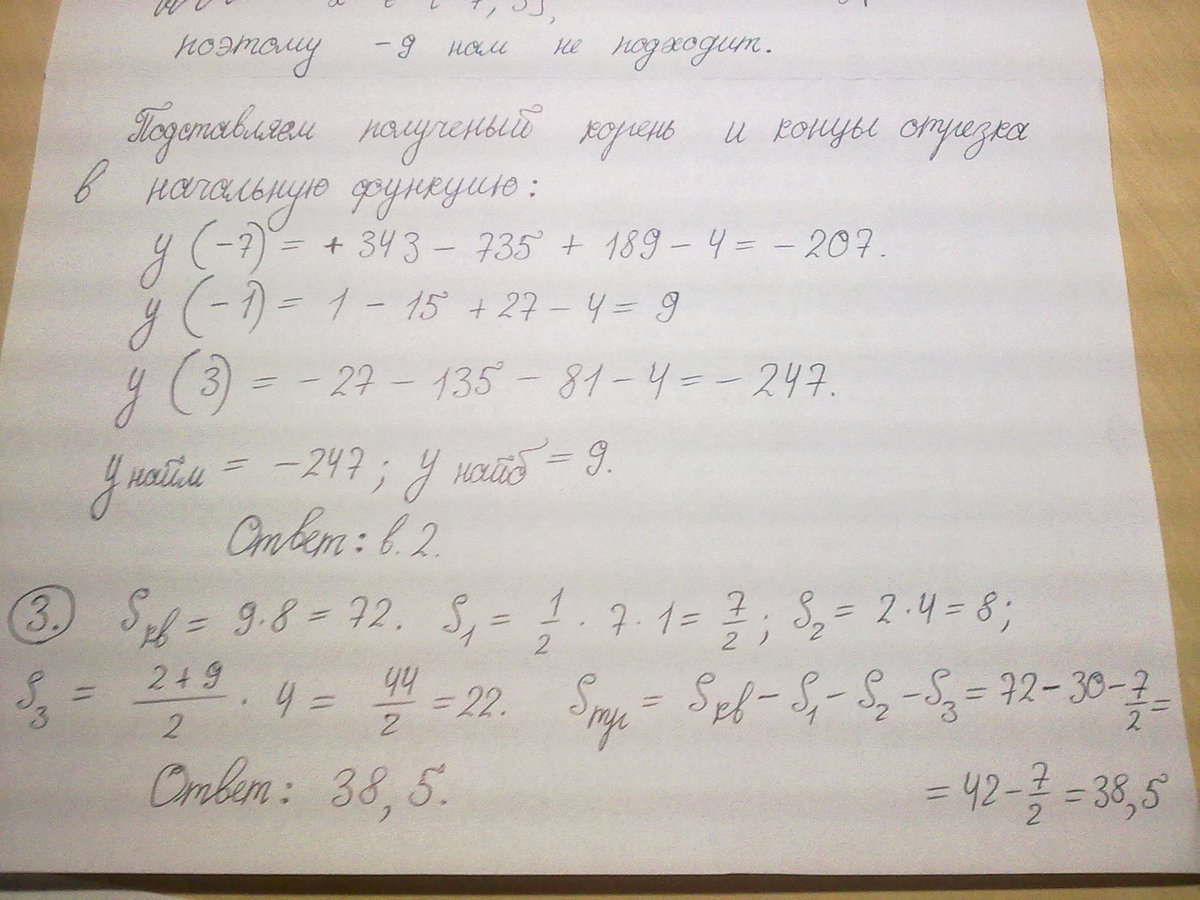 поэтому -9 нам не подходит.
Подставляем полученый корень и концы отрезка
в начальную функцию:
y (-7) = + 343 - 735 + 189 - 4 = - 207.
y (-1) = 1 - 15 + 27 - 4 = 9
y (3) = - 27 - 135 - 81 - 4 = - 247.
y найм = -247; y найб = 9.
Ответ: в. 2.
3. Sкв = 9·8 = 72. S1 = 1/2 · 7·1 = 7/2; S2 = 2·4 = 8;
S3 = (2+9)/2 · 4 = 44/2 = 22. Sтр = Sкв - S1 - S2 - S3 = 72 - 30 - 7/2 =
= 42 - 7/2 = 38,5
Ответ: 38,5.